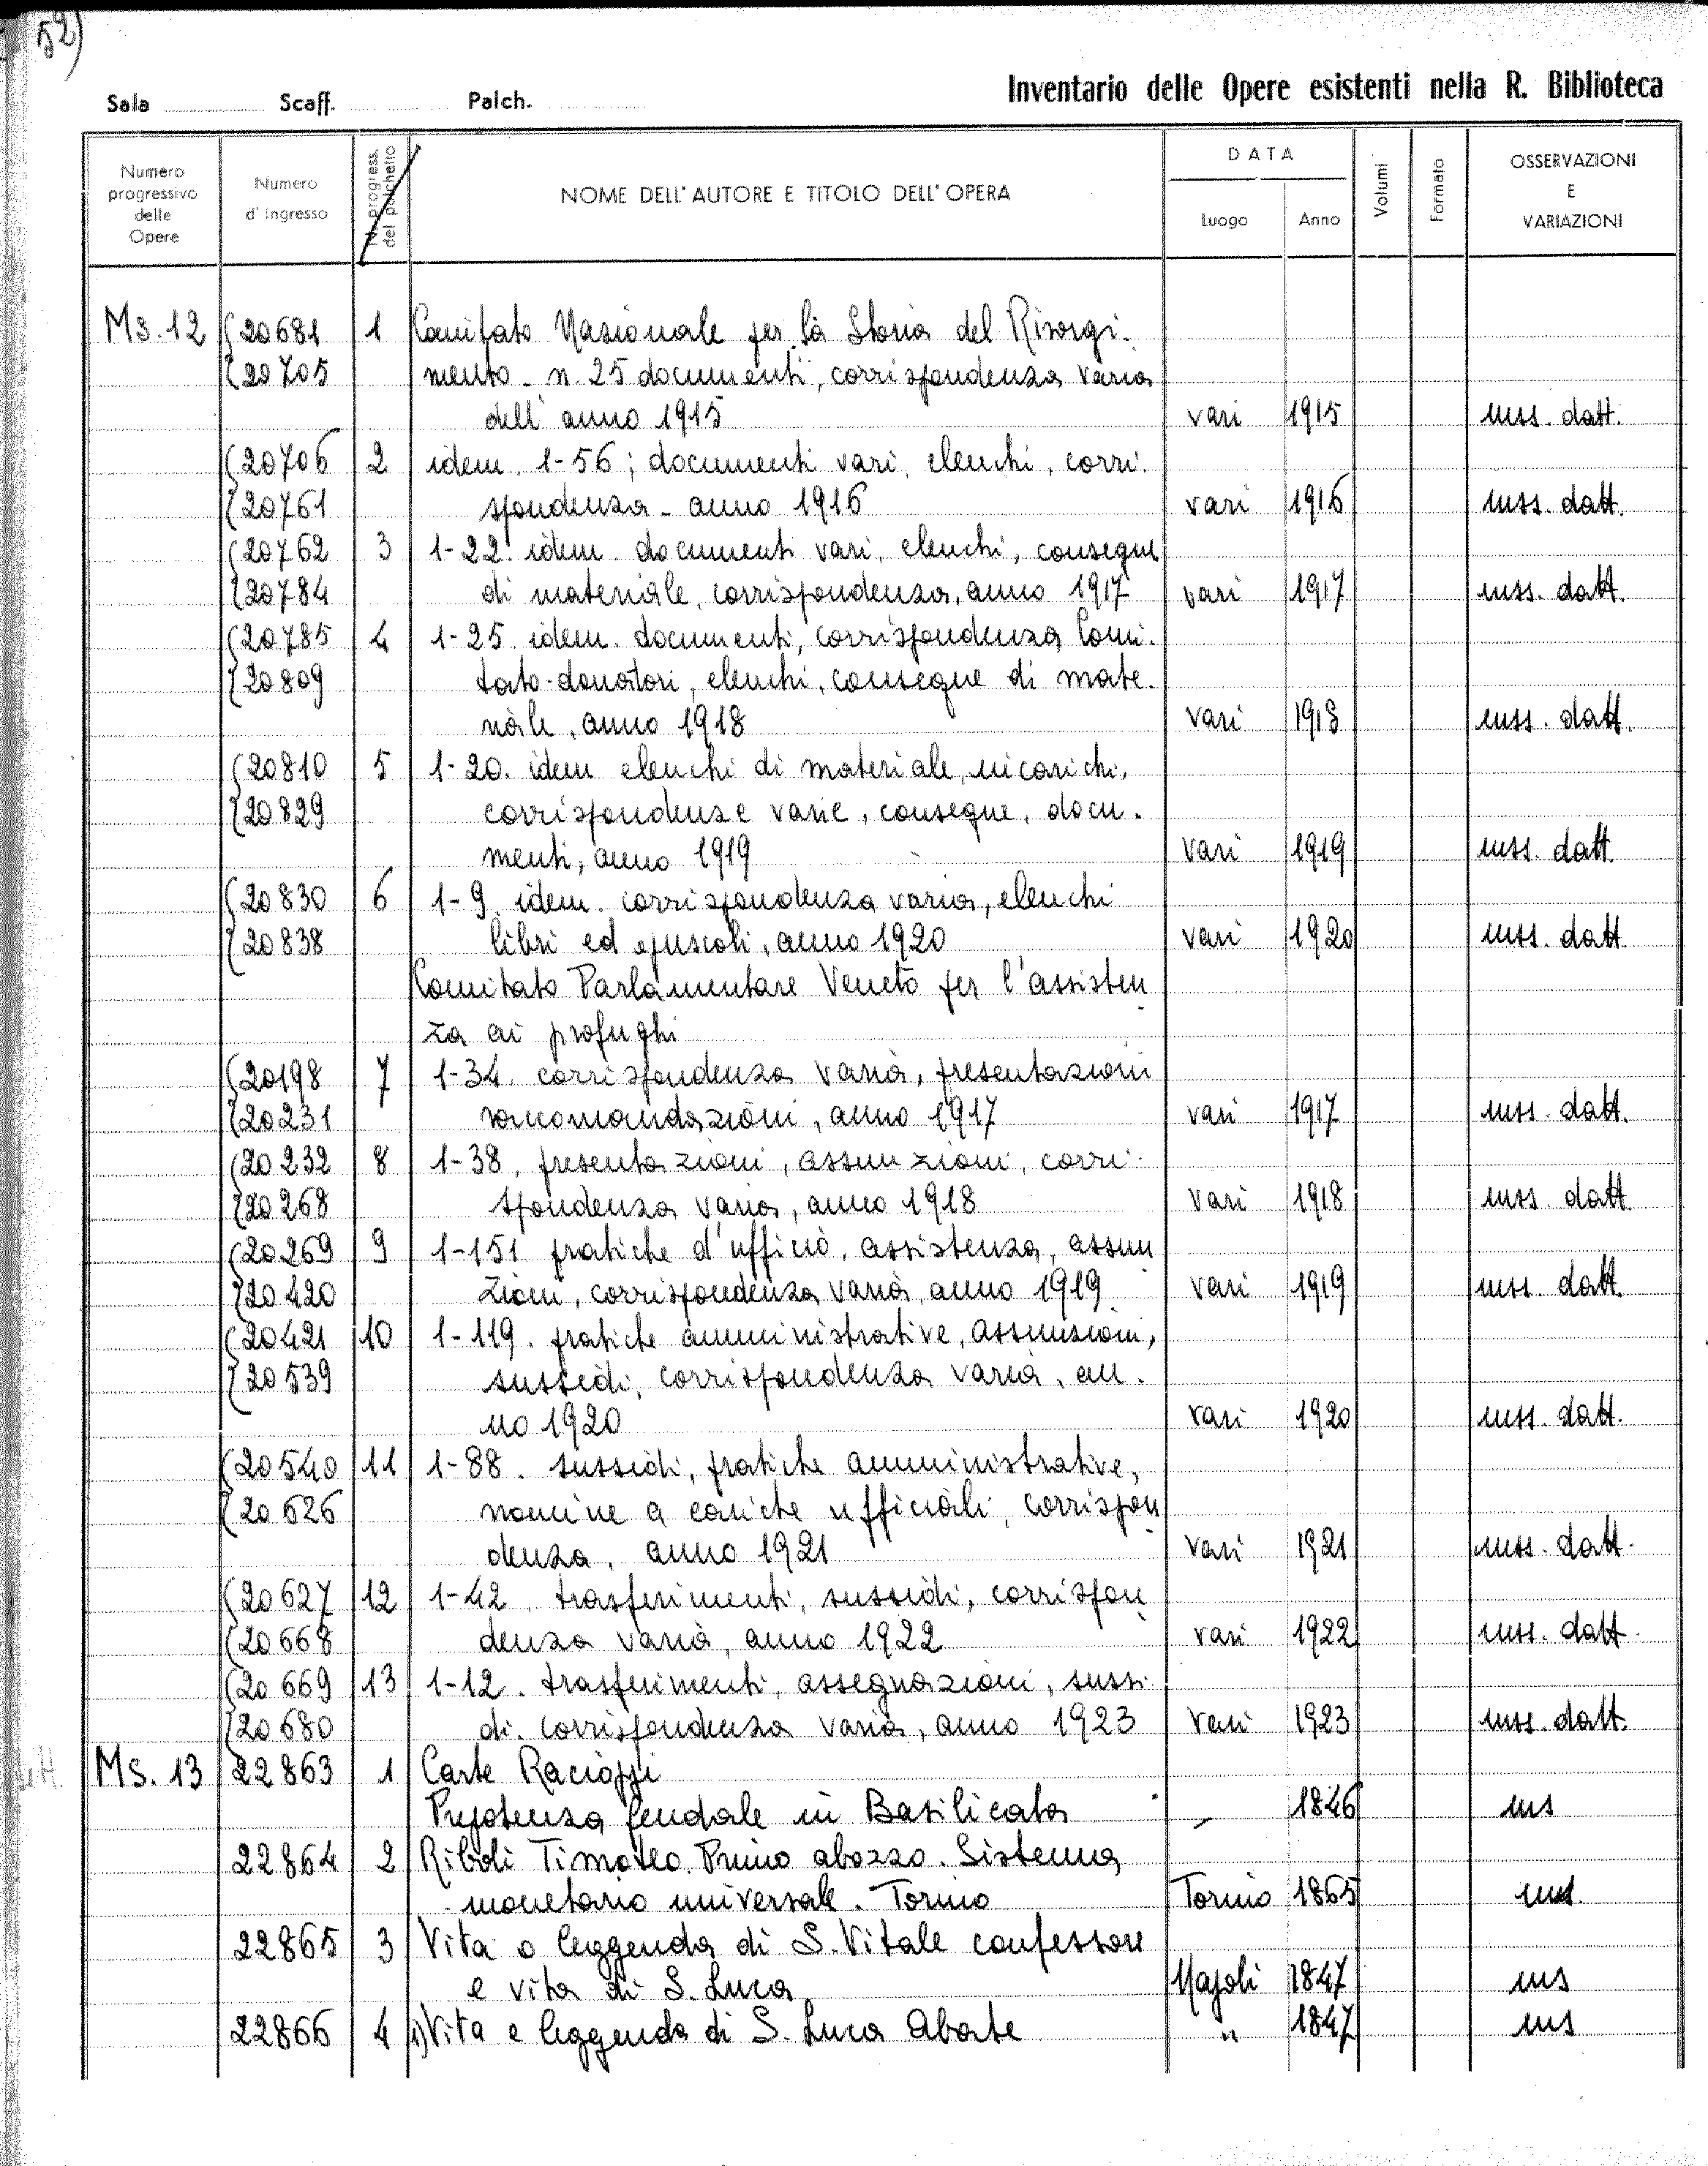 52)
Inventario delle Opere esistenti nella R. Biblioteca
Sala Scaff. Palch.
Numero progressivo delle Opere
Numero d'ingresso
N. progress. del palchetto
NOME DELL'AUTORE E TITOLO DELL'OPERA
DATA
Luogo Anno
Volumi
Formato
OSSERVAZIONI E VARIAZIONI
Ms. 12 (20681 1 Comitato Nazionale per la Storia del Risorgi-
(20705 mento - n. 25 documenti, corrispondenza varia
dell'anno 1915 vari 1915 mss. datt.
(20706 2 idem. 1-56; documenti vari, elenchi, corri-
(20761 spondenza - anno 1916 vari 1916 mss. datt.
(20762 3 1-22. idem. documenti vari, elenchi, consegne
(20784 di materiale, corrispondenza, anno 1917 vari 1917 mss. datt.
(20785 4 1-25 idem. documenti, corrispondenza Comi-
(20809 tato-donatori, elenchi, consegne di mate-
riale, anno 1918 vari 1918 mss. datt.
(20810 5 1-20. idem elenchi di materiale, incarichi,
(20829 corrispondenze varie, consegne, docu-
menti, anno 1919 vari 1919 mss. datt.
(20830 6 1-9. idem. corrispondenza varia, elenchi
(20838 libri ed opuscoli, anno 1920 vari 1920 mss. datt
Comitato Parlamentare Veneto per l'assisten
za ai profughi
(20198 7 1-34. corrispondenza varia, presentazioni
(20231 raccomandazioni, anno 1917 vari 1917 mss. datt.
(20232 8 1-38, presentazioni, assunzioni, corri-
(20268 spondenza varia, anno 1918 vari 1918 mss datt
(20269 9 1-151 pratiche d'ufficio, assistenza, assun
(20420 zioni, corrispondenza varia, anno 1919 vari 1919 mss. datt.
(20421 10 1-119. pratiche amministrative, assunzioni,
(20539 sussidi, corrispondenza varia, an-
no 1920 vari 1920 mss. datt.
(20540 11 1-88. sussidi, pratiche amministrative,
(20626 nomine a cariche ufficiali, corrispon
denza, anno 1921 vari 1921 mss. datt.
(20627 12 1-42. trasferimenti, sussidi, corrispon
(20668 denza varia, anno 1922 vari 1922 mss. datt.
(20669 13 1-12. trasferimenti, assegnazioni, sussi-
(20680 di. corrispondenza varia, anno 1923 vari 1923 mss. datt.
Ms. 13 22863 1 Carte Racioppi
Prepotenza feudale in Basilicata - 1846 ms
22864 2 Riboli Timoteo. Primo abozzo. Sistema
monetario universale. Torino Torino 1865 ms
22865 3 Vita o leggenda di S. Vitale confessore
e vita di S. Luca Napoli 1847 ms
22866 4 1) Vita e leggenda di S. Luca Abate " 1847 ms